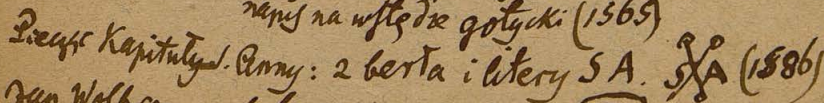 napis na wstędze gotycki (1565)
Pieczęć Kapituły ś. Anny: 2 berła i litery S A. S A (1586)
Jan